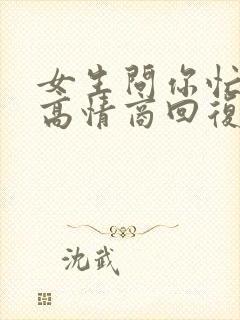 女生問你忙
高情商回復
沈武